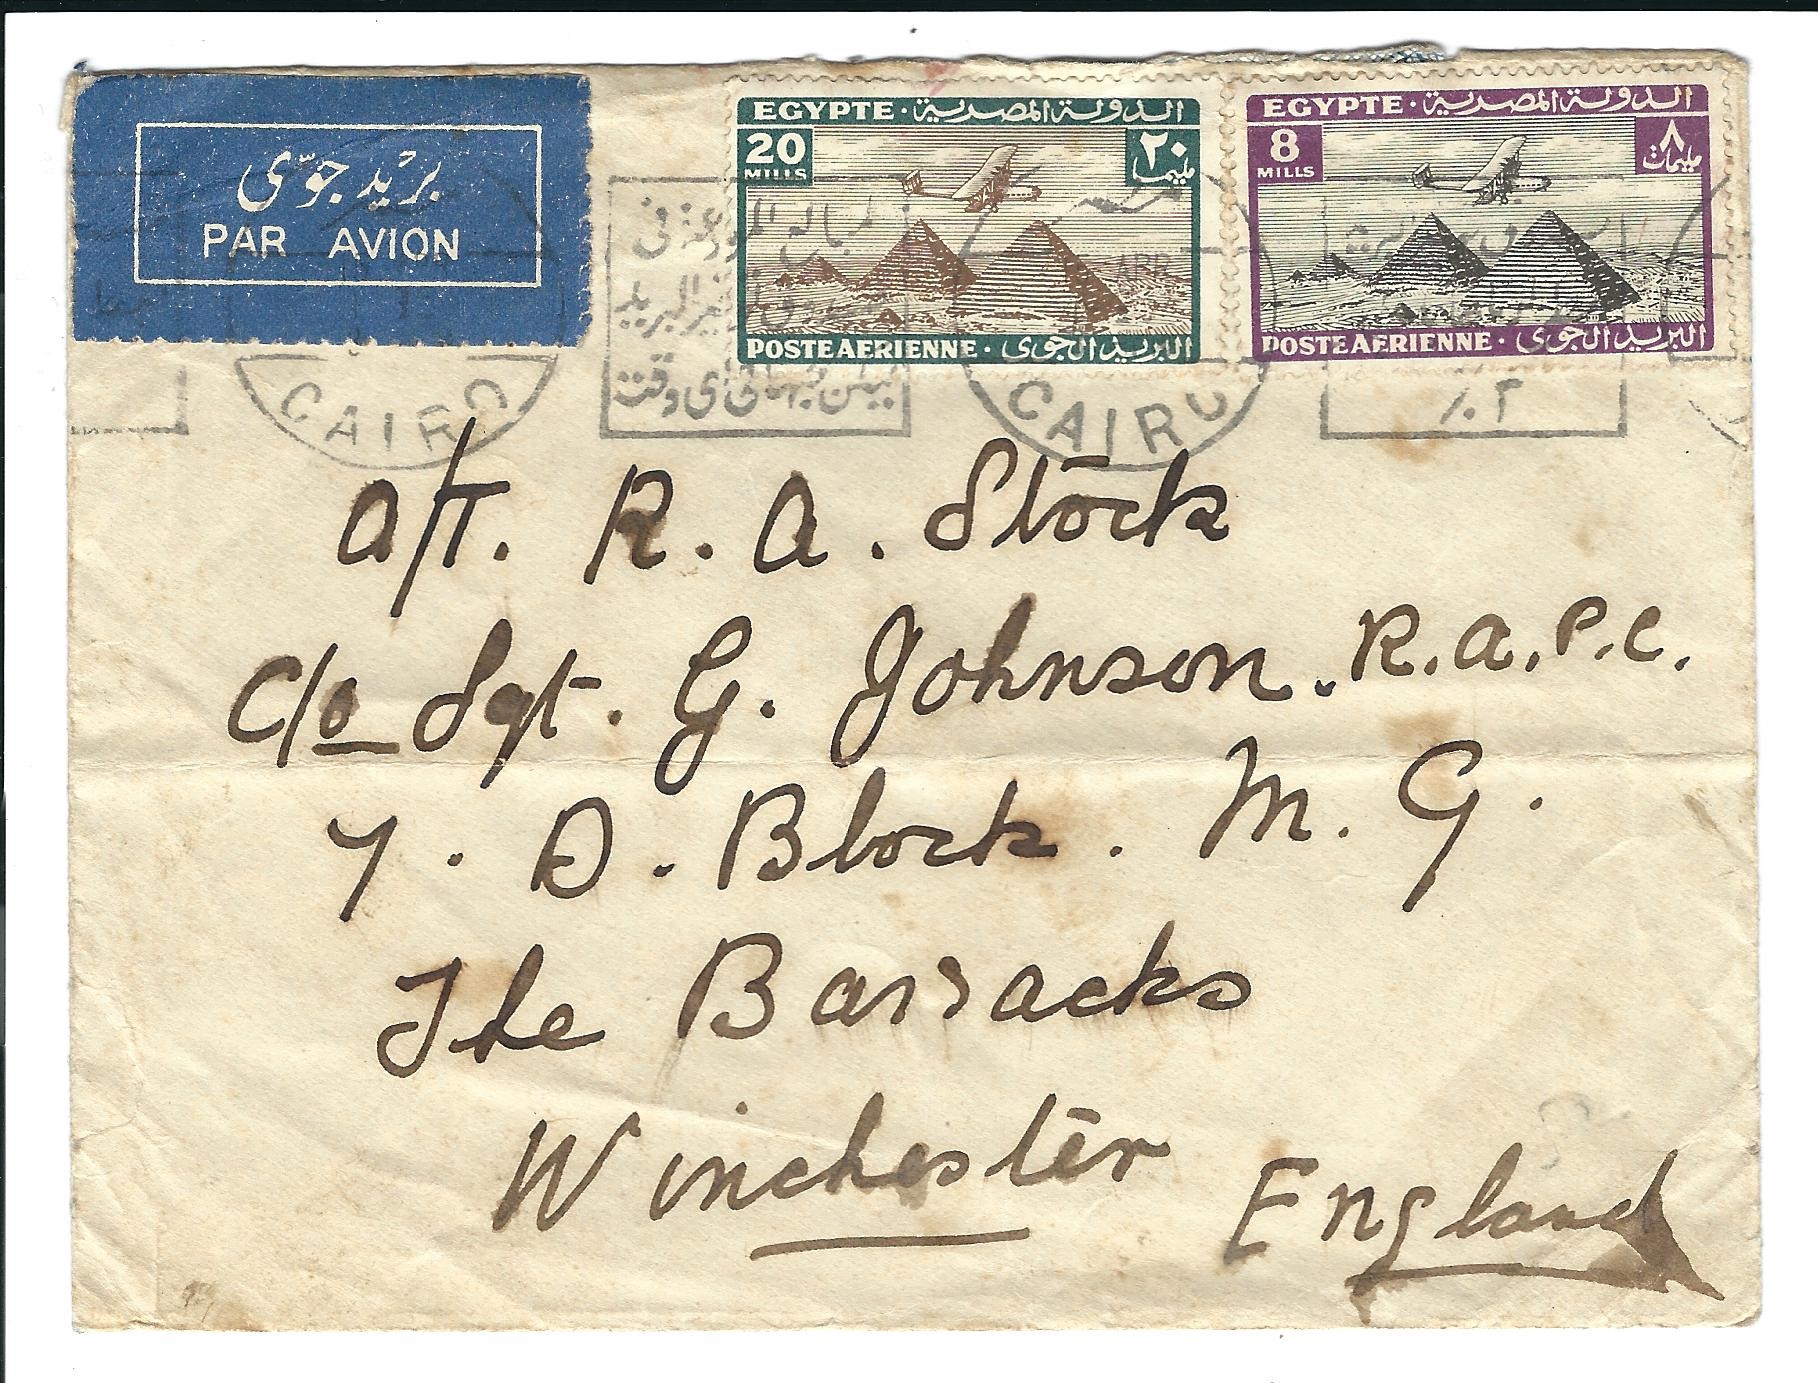 بريد جوّى
PAR AVION
EGYPTE · الدولة المصرية
20 MILLS ٢٠ مليما
POSTE AERIENNE · البريد الجوى
EGYPTE · الدولة المصرية
8 MILLS ٨ مليمات
POSTE AERIENNE · البريد الجوى
CAIRO
CAIRO
APR
٪ ٢
A/T. R. A. Stock
C/o Sgt. G. Johnson. R.A.P.C.
7. D. Block. M. G.
The Barracks
Winchester
England